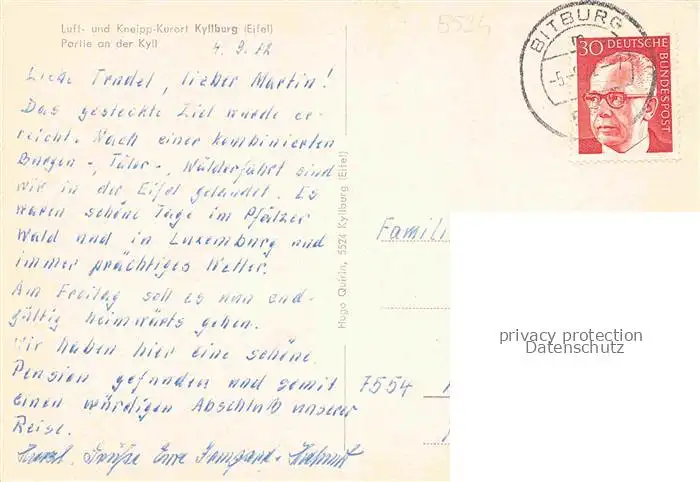 Luft- und Kneipp-Kurort Kyllburg (Eifel)
Partie an der Kyll
4. 9. 72
Liebe Trudel, lieber Martin!
Das gesteckte Ziel wurde er-
reicht. Nach einer kombinierten
Burgen-, Täler-, Wälderfahrt sind
wir in der Eifel gelandet. Es
waren schöne Tage im Pfälzer
Wald und in Luxemburg und
immer prächtiges Wetter.
Am Freitag soll es nun end-
gültig heimwärts gehen.
Wir haben hier eine schöne
Pension gefunden und somit
einen würdigen Abschluß unserer
Reise.
Herzl. Grüße Eure Irmgard + Helmut
Hugo Quirin, 5524 Kyllburg (Eifel)
BITBURG
30 DEUTSCHE
BUNDESPOST
Famili
7554
privacy protection
Datenschutz